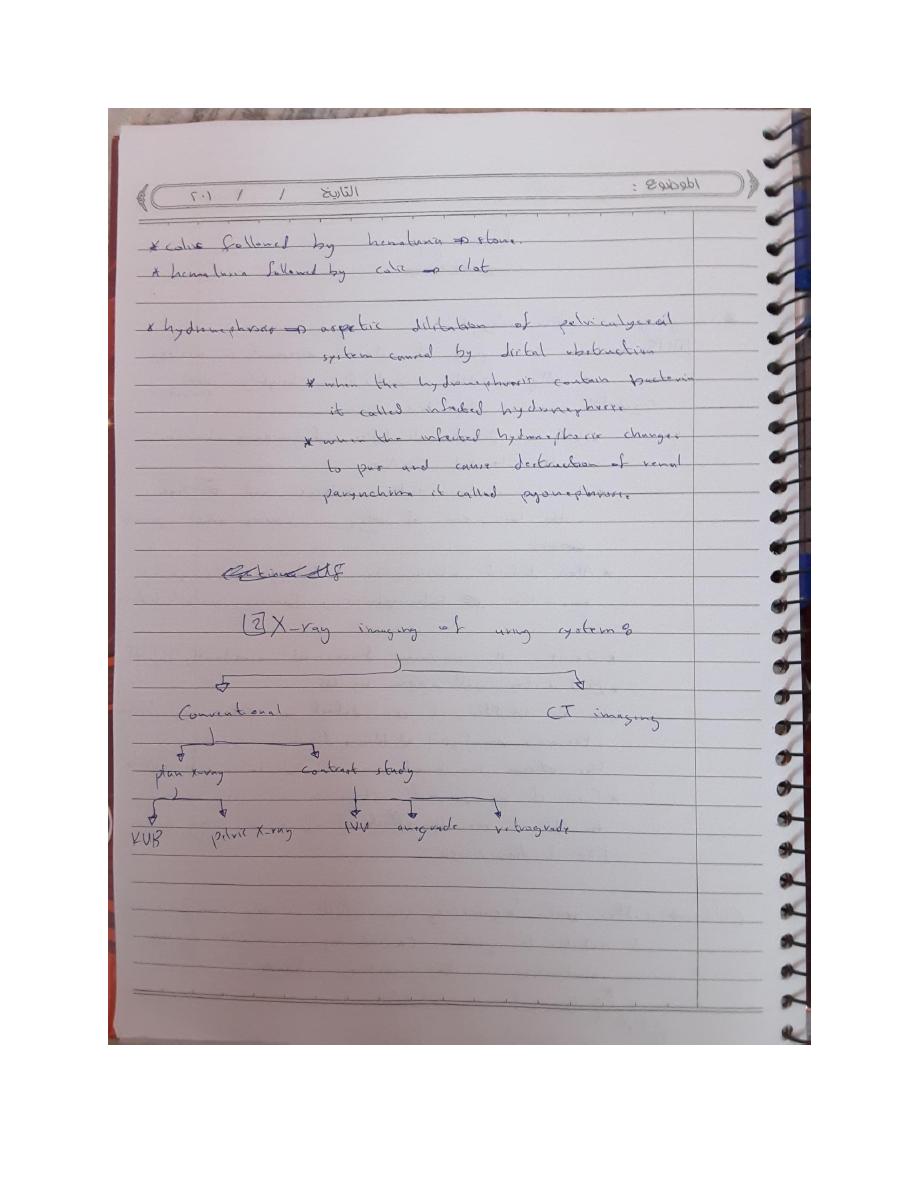 الموضوع : التاريخ / / ٢٠١
* colic followed by hematuria ⇒ stone.
* hematuria followed by colic ⇒ clot
* hydronephrosis ⇒ aspetic dilitation of pelvicalyceal
system caused by distal obstruction
* when the hydronephrosis contain bacteria
it called infected hydronephrosis
* when the infected hydronephrosis changes
to pus and cause destruction of renal
parynchima it called pyonephrosis.
2 X-ray imaging of uring system:
Conventional CT imaging
plan x-ray contrast study
KUB pelvic X-ray IVU anegrade retrograde